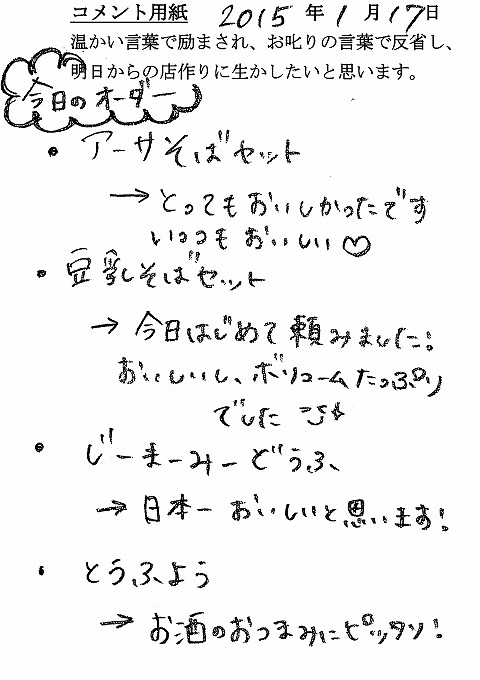 コメント用紙 2015年1月17日
温かい言葉で励まされ、お叱りの言葉で反省し、
明日からの店作りに生かしたいと思います。
今日のオーダー
・アーサそばセット
→とってもおいしかったです
いつもおいしい♡
・豆乳そばセット
→今日はじめて頼みました!
おいしいし、ボリュームたっぷり
でした
・じーまーみーどうふ、
→日本一おいしいと思います!
・とうふよう
→お酒のおつまみにピッタリ!